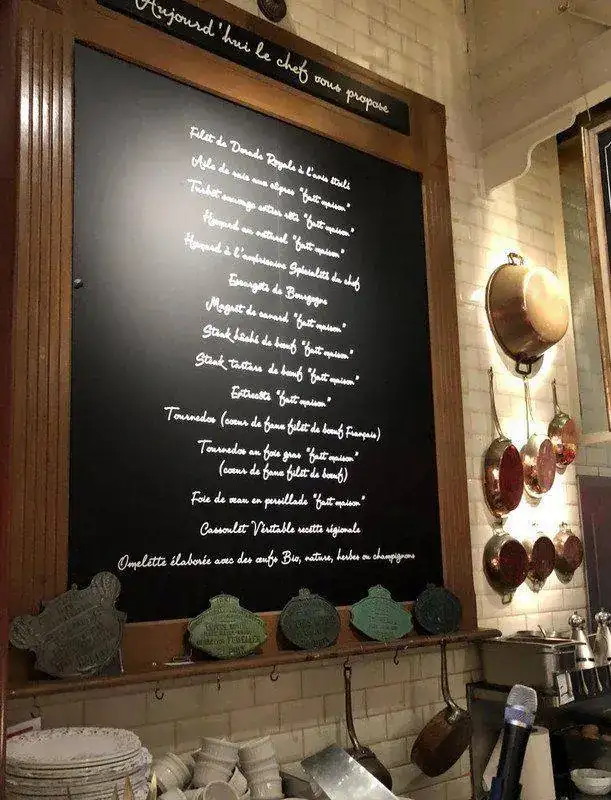 Aujourd'hui le chef vous propose
Filet de Dorade Royale à l'anis étoilé
Aile de raie aux câpres "fait maison"
Turbot sauvage entier rôti "fait maison"
Homard au naturel "fait maison"
Homard à l'américaine Spécialité du chef
Escargots de Bourgogne
Magret de canard "fait maison"
Steak hâché de bœuf "fait maison"
Steak tartare de bœuf "fait maison"
Entrecôte "fait maison"
Tournedos (cœur de faux filet de bœuf Français)
Tournedos au foie gras "fait maison"
(cœur de faux filet de bœuf)
Foie de veau en persillade "fait maison"
Cassoulet Véritable recette régionale
Omelette élaborée avec des œufs Bio, nature, herbes ou champignons